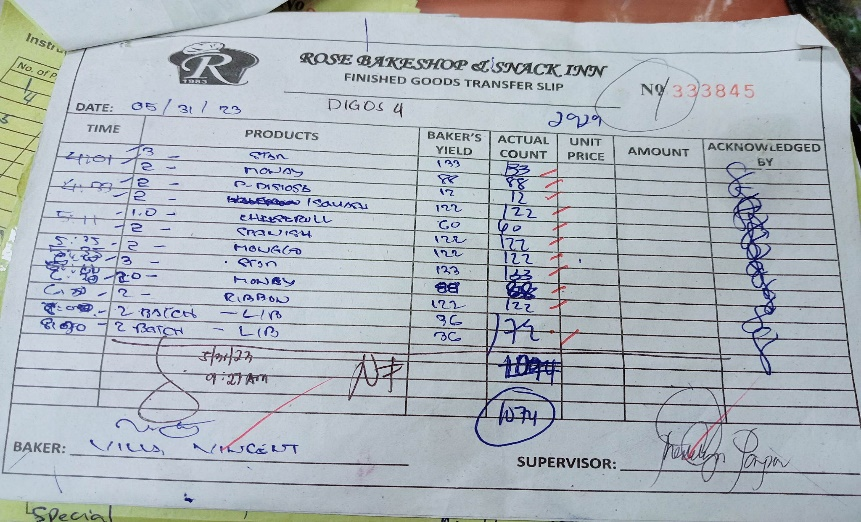 Instru
No. of P
R
1983
ROSE BAKESHOP & SNACK INN
FINISHED GOODS TRANSFER SLIP
Nº 333845
DATE: 05/31/23 DIGOS 4
2929
TIME PRODUCTS BAKER'S YIELD ACTUAL COUNT UNIT PRICE AMOUNT ACKNOWLEDGED BY
4:01 3 - STAR 133 133
2 - MONAY 88 88
2 - 12 12
2 - 122 122
5:11 1.0 - CHEESEROLL 60 60
2 - SPANISH 122 122
5:25 2 - MONGGO 122 122
3 - STAR 133 133
2.0 - MONAY 88 88
2 - RIBBON 122 122
2 BATCH - L/B 36
2 BATCH - L/B 36 72
5/31/23
9:27 AM
NF
1094
1074
BAKER: VINCENT
SUPERVISOR:
Special